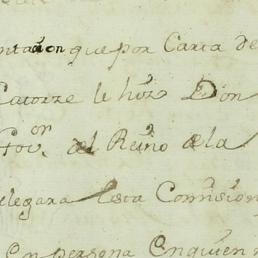 ntacion que por Carta de
Catorze le hizo Don
Gov.or del Reino de la
elegara esta Comision
en persona en quien